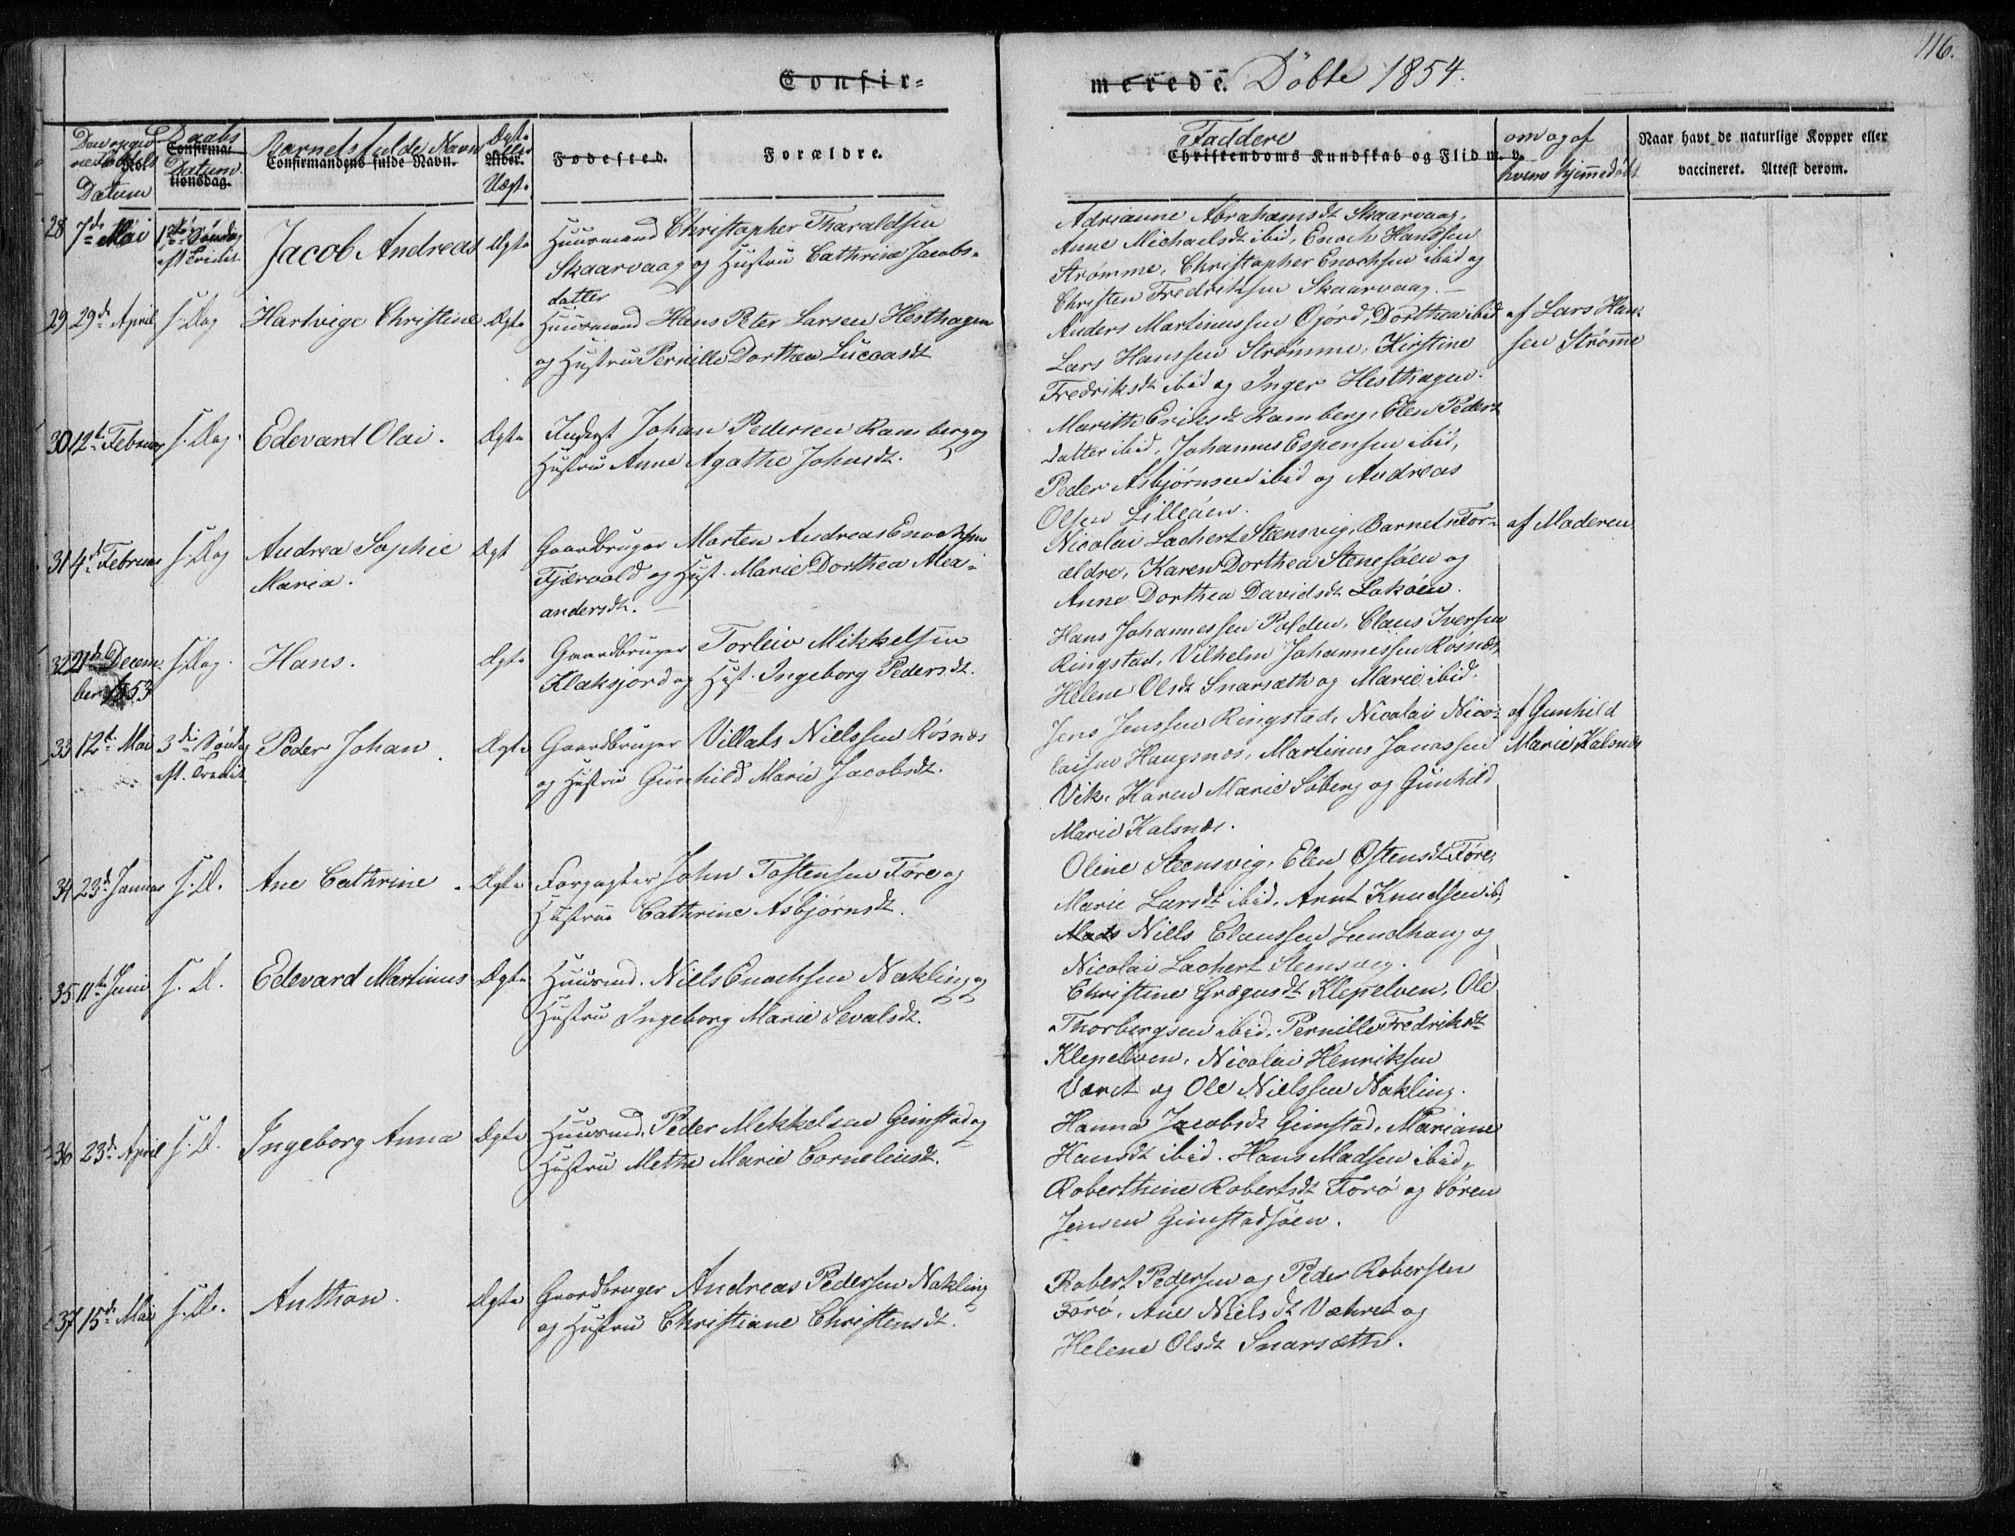 116.
Confir-
merede. Döbte 1854.
Daabs Datum
Barnets fulde Navn
Ægte eller Uægte
Fødested.
Forældre.
Faddere
om og af hvem hjemmedøbt
Confirmandens fulde Navn.
Alder.
Christendoms Kundskab og Flid m. v.
Naar havt de naturlige Kopper eller
vaccineret. Attest derom.
Confirma-
tionsdag.
Datum
28 7de Mai
1ste Søndag eft. Tredit.
Jacob Andreas
Ægte
Huusmand Christopher Tharaldsen
Skaarvaag og Hustru Cathrine Jacobs-
datter
Adrianne Abrahamsdt Skaarvaag,
Anne Michaelsdt ibid, Enoch Hanssen
Strømme, Christopher Enochsen ibid og
Christen Fredriksen Skaarvaag. —
29 29de April
s. Dag
Hartvige Christine
Ægte
Huusmand Hans Peter Larsen Hesthagen
og Hustru Pernille Dorthea Lucasdt
Anders Martinussen Gjörd, Dorthea ibid
Lars Hanssen Strømme, Kirstine
Fredriksdt ibid og Inger Hesthagen.
af Lars Han-
sen Strømme
30 12te Februar
s. Dag.
Edevard Olai.
Ægte
Inderst Johan Pedersen Ramberg og
Hustru Anne Agathe Johnsdt.
Marith Eriksdt Ramberg, Elen Peders
datter ibid, Johannes Espensen ibid,
Peder Asbjørnsen ibid og Andreas
Olsen Lilleöen.
31 4de Februar
s. Dag
Andrea Sophie
Maria.
Ægt
Gaardbruger Morten Andreas Enochsen
Fjærvold og Hust. Marie Dorthea Alex-
andersdt. —
Nicolai Lachert Steensvig, Barnets For-
ældre, Karen Dorthea Stenesöen og
Anne Dorthea Davidsdt Laköen.
af Moderen
32 21de Decem
ber 1853
s. Dag.
Hans.
Ægte
Gaardbruger Torleiv Mikkelsen
Klaksjord og Hust. Ingeborg Pedersdt.
Hans Johannessen Polden, Claus Iversen
Ringstad, Vilhelm Johannissen Røsnæs
Helene Olsdt Snarsæth og Marie ibid.
33 12te Mai
3die Søndag eft. Tredit.
Peder Johan.
Ægte
Gaardbruger Villats Nielssen Røsnæs
og Hustru Gunhild Marie Jacobsdt.
Jens Jenssen Ringstad, Nicolai Nico-
laisen Haugsnæs, Martinus Jonassen
Vik, Karen Marie Söberg og Gunhild
Marie Kalsnæs.
af Gunhild
Marie Kalsnæs
34 23de Januar
s. D.
Ane Cathrine.
Ægte
Forpagter John Tostensen Føre og
Hustru Cathrine Asbjørnsdt.
Oline Steensvig, Elen Ostensdt Føre,
Marie Larsdt ibid, Arnt Knudsen ibd,
Mads Niels Claussen Sundhaug og
Nicolai Lachert Steensvig.
35 11te Juni
s. D.
Edevard Martinus
Ægte
Huusmd. Niels Enochsen Nakling og
Hustru Ingeborg Marie Sevalsdt.
Christine Grægusdt Klepelven, Ole
Thorbergsen ibid, Pernille Fredriksdt
Klepelven, Nicolai Henriksen
Været og Ole Nielssen Nakling.
36 23de April
s. D.
Ingeborg Anna
Ægte
Huusmd. Peder Mekkelsen Gimstad og
Hustru Methe Marie Corneliusdt.
Hanna Jacobsdt Gimstad, Mariane
Hansdt ibid. Hans Madsen ibid,
Roberthine Robertsdt Forö og Sören
Jensen Gimstadsöen.
37 15de Mai
s. D.
Anthon.
Ægte
Gaardbruger Andreas Pedersen Nakling
og Hustru Christiane Christensdt.
Robert Pedersen og Peder Robersen
Forö, Ane Nielsdt Vahret og
Helene Olsdt Snarsæth.